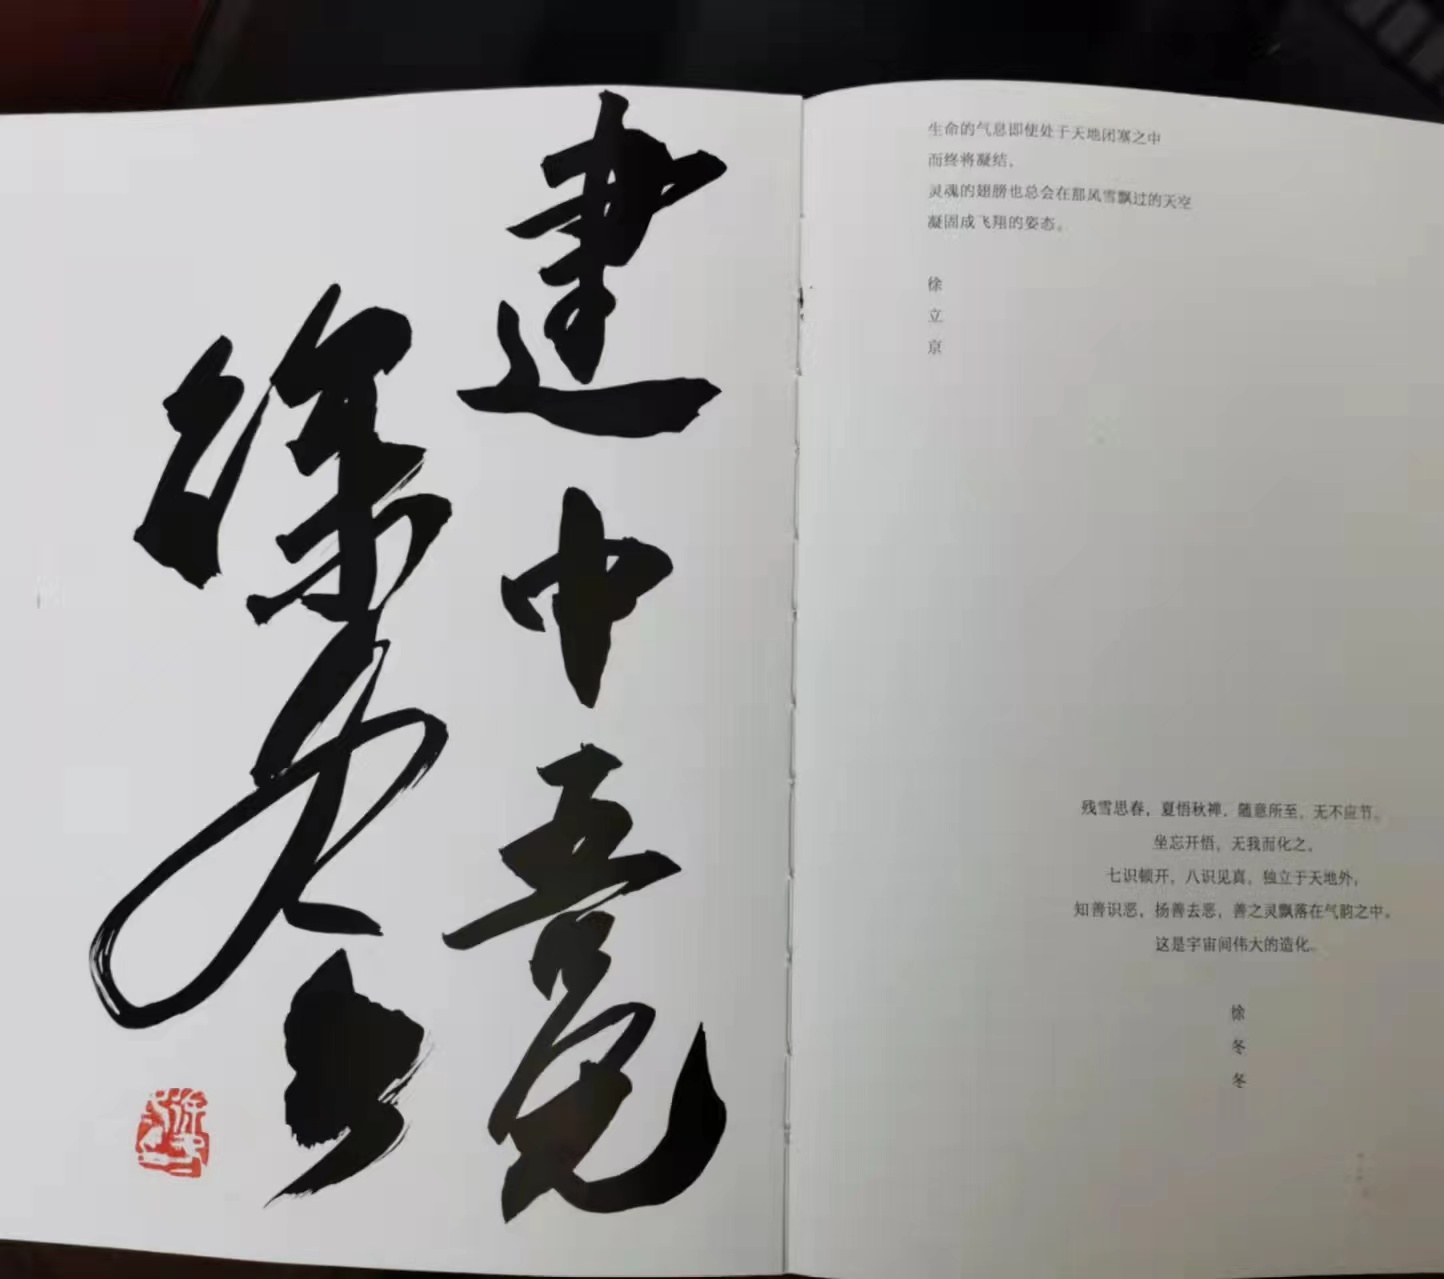 建中吾兄
徐冬冬
生命的气息即使处于天地闭塞之中
而终将凝结，
灵魂的翅膀也总会在那风雪飘过的天空
凝固成飞翔的姿态。
徐立京
残雪思春，夏悟秋禅，随意所至，无不应节。
坐忘开悟，无我而化之，
七识顿开，八识见真，独立于天地外，
知善识恶，扬善去恶，善之灵飘落在气韵之中。
这是宇宙间伟大的造化。
徐冬冬